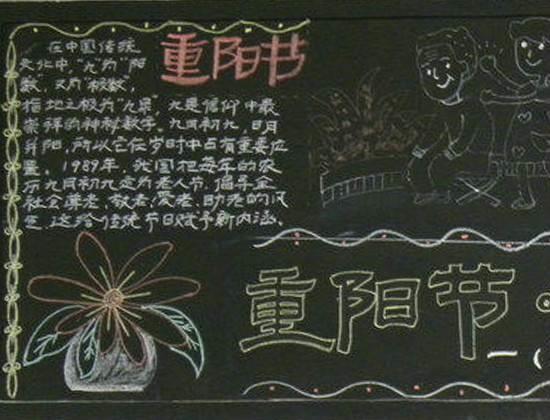 重阳节
在中国传统
文化中，“九”为“阳
数”，又为“极数”，
指地之极为“九泉”，九是信仰中最
崇祥的神秘数字，九月初九，日月
并阳，所以它在岁时中占有重要位
置。1989年，我国把每年的农
历九月初九定为老人节，倡导全
社会尊老、敬老、爱老、助老的风
这给传统节日赋予新内涵。
重阳节